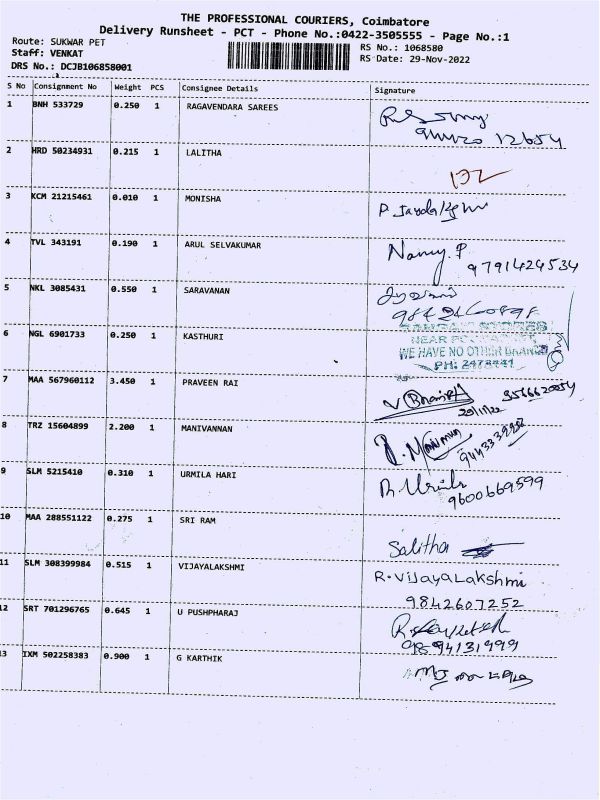 THE PROFESSIONAL COURIERS, Coimbatore
Delivery Runsheet - PCT - Phone No.:0422-3505555 - Page No.:1
Route: SUKWAR PET
Staff: VENKAT
DRS No.: DCJB106858001
RS No.: 1068580
RS Date: 29-Nov-2022
S No Consignment No Weight PCS Consignee Details Signature
1 BNH 533729 0.250 1 RAGAVENDARA SAREES
2 HRD 50234931 0.215 1 LALITHA 132
3 KCM 21215461 0.010 1 MONISHA
4 TVL 343191 0.190 1 ARUL SELVAKUMAR Nancy. P
9791424534
5 NKL 3085431 0.550 1 SARAVANAN
6 NGL 6901733 0.250 1 KASTHURI
WE HAVE NO OTHER BRANCH
PH: 2478441
7 MAA 567960112 3.450 1 PRAVEEN RAI
29/11/22
8 TRZ 15604899 2.200 1 MANIVANNAN
9 SLM 5215410 0.310 1 URMILA HARI
9600669599
10 MAA 288551122 0.275 1 SRI RAM Salitha
11 SLM 308399984 0.515 1 VIJAYALAKSHMI R. Vijayalakshmi
9842607252
12 SRT 701296765 0.645 1 U PUSHPHARAJ
9894131999
13 IXM 502258383 0.900 1 G KARTHIK